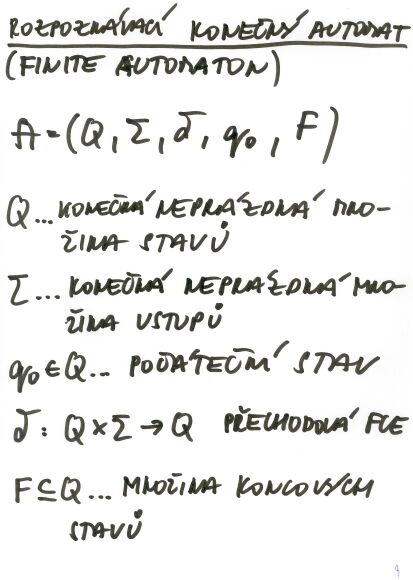 ROZPOZNÁVACÍ KONEČNÝ AUTOMAT
(FINITE AUTOMATON)
A = (Q, Σ, δ, q₀, F)
Q ... KONEČNÁ NEPRÁZDNÁ MNO-
ŽINA STAVŮ
Σ ... KONEČNÁ NEPRÁZDNÁ MNO-
ŽINA VSTUPŮ
q₀ ∈ Q ... POČÁTEČNÍ STAV
δ : Q × Σ → Q PŘECHODOVÁ FCE
F ⊆ Q ... MNOŽINA KONCOVÝCH
STAVŮ